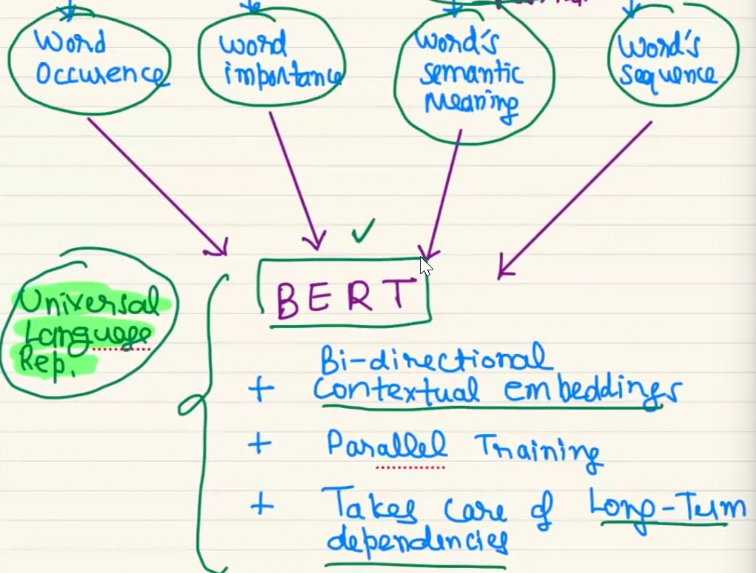 Word
Occurence
word
importance
Word's
semantic
Meaning
Word's
sequence
BERT
Universal
Language
Rep.
Bi-directional
+ Contextual embeddings
+ Parallel Training
+ Takes care of Long-Term
dependencies